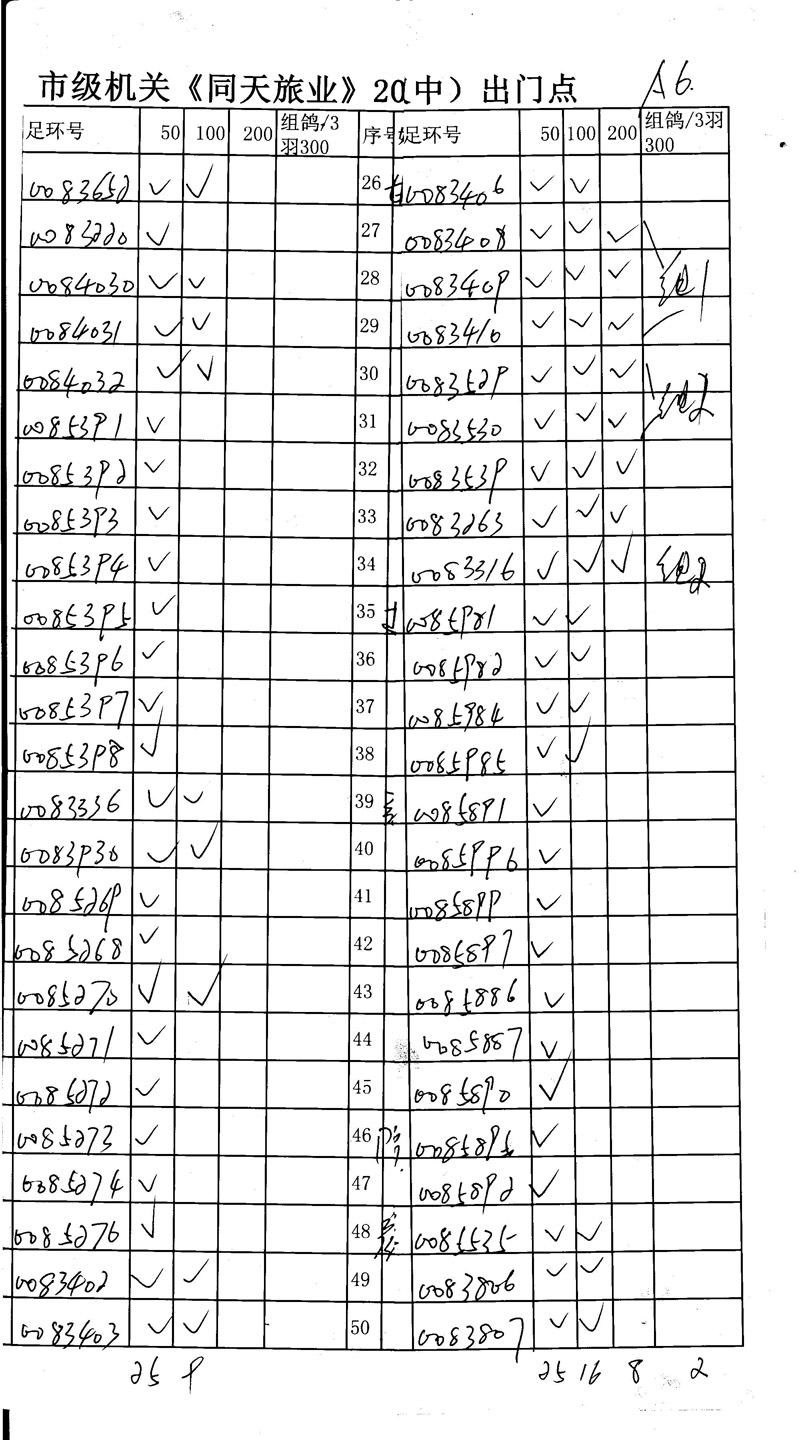 A6.
市级机关《同天旅业》20(中）出门点
足环号 50 100 200 组鸽/3羽300 序号 足环号 50 100 200 组鸽/3羽300
0083652 ✓ ✓ 26 0083406 ✓ ✓
0083220 ✓ 27 0083408 ✓ ✓ ✓
0084030 ✓ ✓ 28 0083409 ✓ ✓ ✓ 组1
0084031 ✓ ✓ 29 0083410 ✓ ✓ ✓
0084032 ✓ ✓ 30 0083529 ✓ ✓ ✓ 组2
0085391 ✓ 31 0083530 ✓ ✓ ✓
0085392 ✓ 32 0083539 ✓ ✓ ✓
0085393 ✓ 33 0083263 ✓ ✓ ✓
0085394 ✓ 34 0083316 ✓ ✓ ✓ 组2
0085395 ✓ 35 0085981 ✓ ✓
0085396 ✓ 36 0085982 ✓ ✓
0085397 ✓ 37 0085984 ✓ ✓
0085398 ✓ 38 0085985 ✓ ✓
0083336 ✓ ✓ 39 0085891 ✓
0083930 ✓ ✓ 40 0085996 ✓
0085269 ✓ 41 0085899 ✓
0085268 ✓ 42 0085897 ✓
0085270 ✓ ✓ 43 0085886 ✓
0085271 ✓ 44 0085887 ✓
0085272 ✓ 45 0085890 ✓
0085273 ✓ 46 0085895 ✓
0085274 ✓ 47 0085892 ✓
0085276 ✓ 48 0085535 ✓ ✓
0083402 ✓ ✓ 49 0083806 ✓ ✓
0083403 ✓ ✓ 50 0083807 ✓ ✓
25 9 25 16 8 2